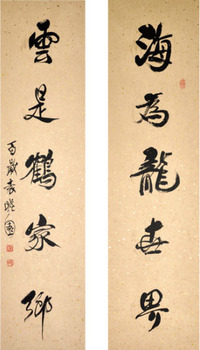 海為龍世界
雲是鶴家鄉
百歲袁曉園